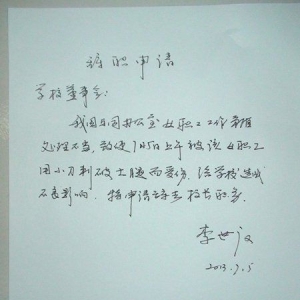 辞职申请
学校董事会:
我因与同办公室女职工工作着有
处理不当,致使7月5日上午被该女职工
用小刀刺破大腿而受伤,给学校造成
不良影响。特申请辞去校长职务
李世
2013.7.5